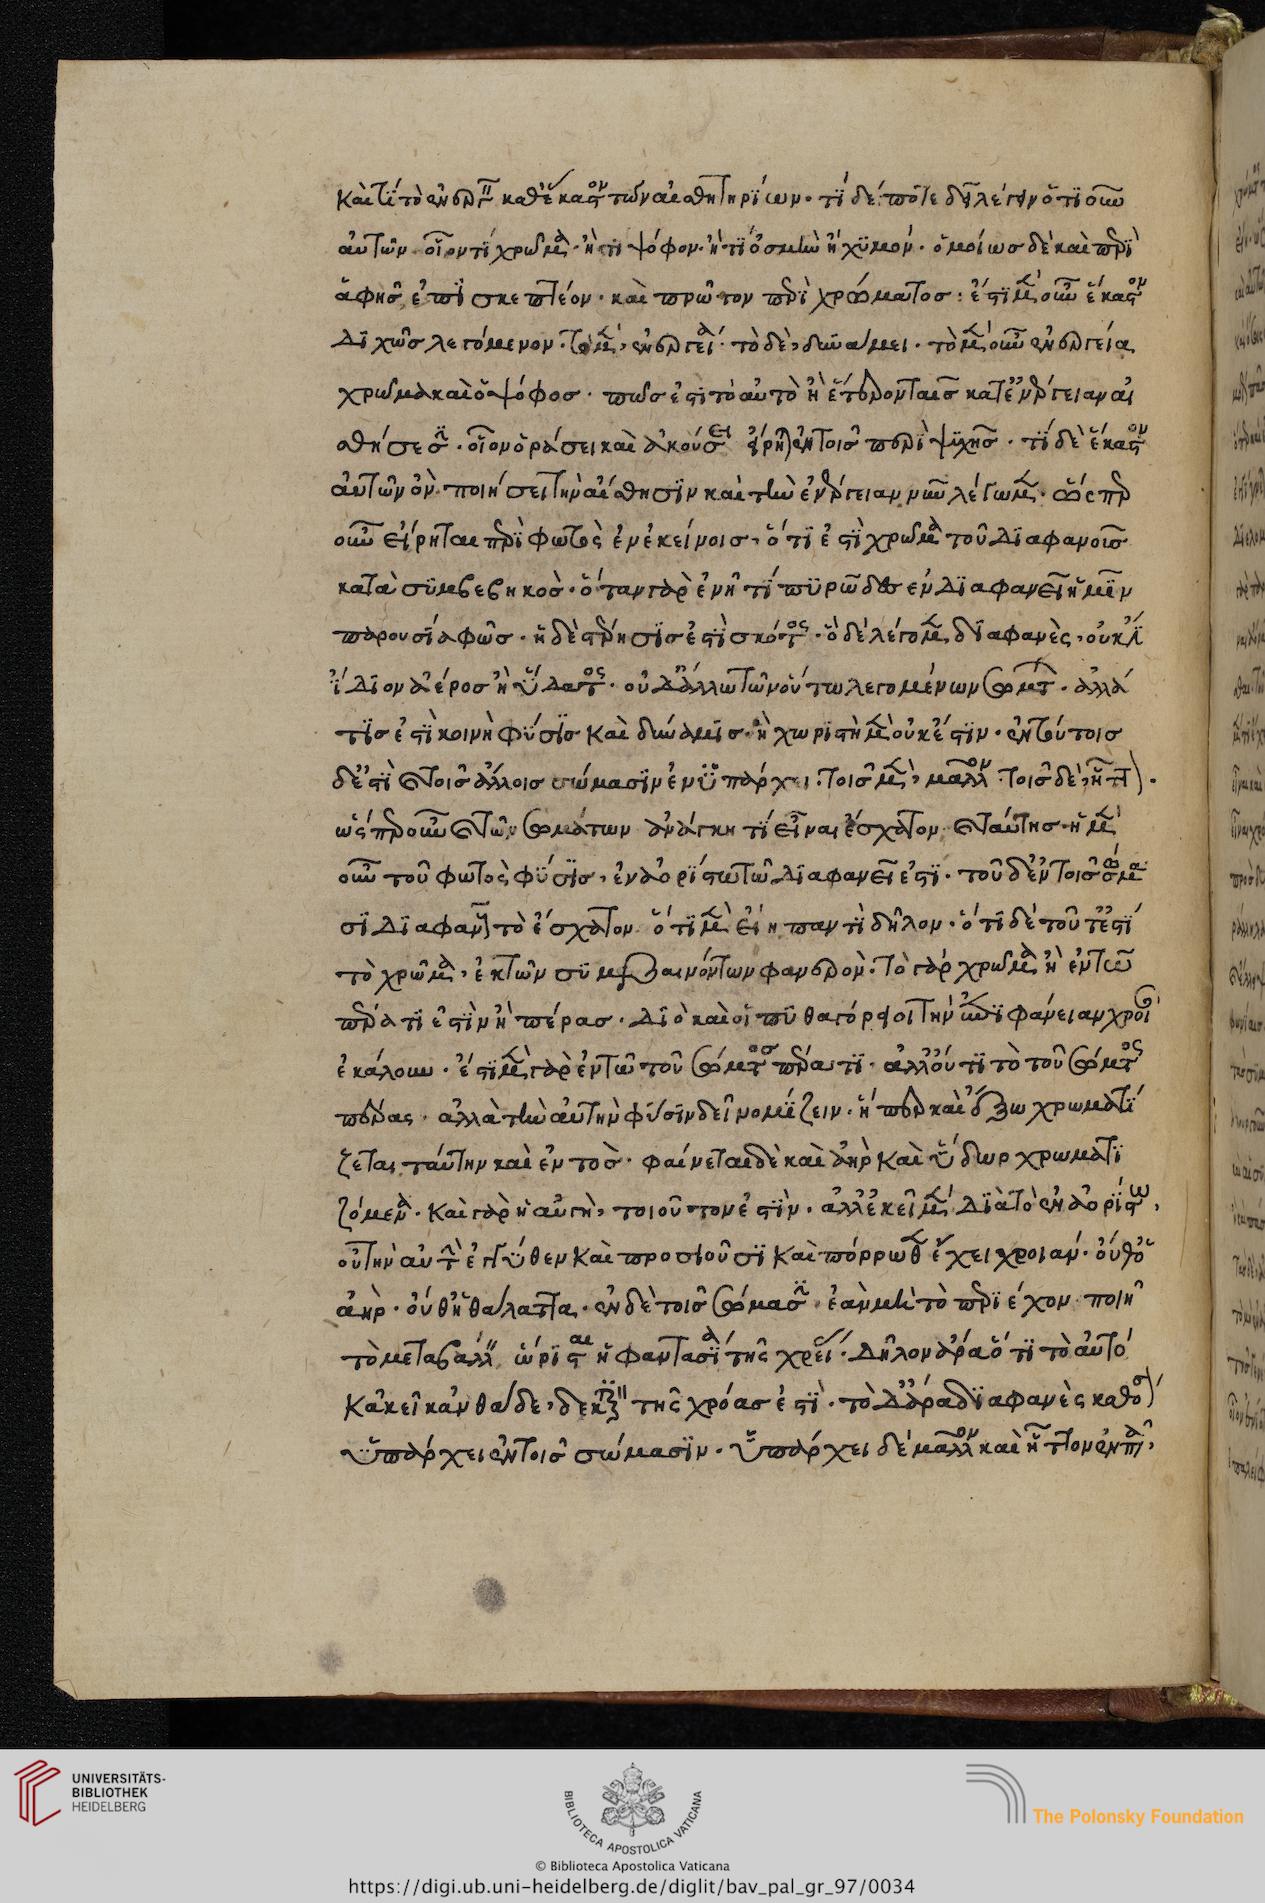 καὶ τί τὸ ἐνεργεῖν καθ' ἕκαστον τῶν αἰσθητηρίων· τί δέ ποτε δεῖ λέγειν ὁτιοῦν
αὐτῶν οἷον τί χρῶμα· ἢ τί ψόφον· ἢ τί ὀσμὴν ἢ χυμόν· ὁμοίως δὲ καὶ περὶ
ἁφῆς ἐπισκεπτέον· καὶ πρῶτον περὶ χρώματος: ἔστι μὲν οὖν ἕκαστον
διχῶς λεγόμενον· τὸ μέν, ἐνεργείᾳ· τὸ δὲ, δυνάμει· τὸ μὲν οὖν ἐνεργείᾳ
χρῶμα καὶ ὁ ψόφος· πῶς ἐστι τὸ αὐτὸ ἢ ἕτερον ταῖς κατ' ἐνέργειαν αἰ
σθήσεσιν· οἷον ὁράσει καὶ ἀκούσει εἴρηται ἐν τοῖς περὶ ψυχῆς· τί δὲ ἕκαστον
αὐτῶν ὂν ποιήσει τὴν αἴσθησιν καὶ τὴν ἐνέργειαν νῦν λέγωμεν· ὥσπερ
οὖν εἴρηται περὶ φωτὸς ἐν ἐκείνοις· ὅτι ἐστὶ χρῶμα τοῦ διαφανοῦς
κατὰ συμβεβηκός· ὅταν γὰρ ἐνῇ τι πυρῶδες ἐν διαφανεῖ ἡ μὲν
παρουσία φῶς· ἡ δὲ στέρησις ἐστὶ σκότος· ὃ δὲ λέγομεν διαφανὲς, οὐκ ἔστιν
ἴδιον ἀέρος ἢ ὕδατος· οὐδ' ἄλλω τῶν οὕτω λεγομένων σωμάτων· ἀλλά
τις ἐστὶ κοινὴ φύσις καὶ δύναμις· ἣ χωριστὴ μὲν οὐκ ἔστιν· ἐν τούτοις
δ' ἐστὶ καὶ τοῖς ἄλλοις σώμασιν ἐνυπάρχει. τοῖς μὲν, μᾶλλον τοῖς δὲ, ἧττον·
ὥσπερ οὖν καὶ τῶν σωμάτων ἀνάγκη τι εἶναι ἔσχατον καὶ ταύτης· ἡ μὲν
οὖν τοῦ φωτὸς φύσις, ἐν ἀορίστω τῶ διαφανεῖ ἐστι· τοῦ δ' ἐν τοῖς σώμα
σι διαφανοῦς τὸ ἔσχατον ὅτι μὲν εἴη παντὶ δῆλον· ὅτι δὲ τοῦτ' ἐστὶ
τὸ χρῶμα, ἐκ τῶν συμβαινόντων φανερὸν· τὸ γὰρ χρῶμα ἢ ἐν τῶ
πέρατι ἐστὶν ἢ πέρας· διὸ καὶ οἱ πυθαγόρειοι τὴν ἐπιφάνειαν χροιὰν
ἐκάλουν· ἔστι μὲν γὰρ ἐν τῶ τοῦ σώματος πέρατι· ἀλλ' οὔτι τὸ τοῦ σώματος
πέρας· ἀλλὰ τὴν αὐτὴν φύσιν δεῖ νομίζειν· ἥπερ καὶ ἔξω χρωματί
ζεται ταύτην καὶ ἐντός· φαίνεται δὲ καὶ ἀὴρ καὶ ὕδωρ χρωματι
ζόμενα· καὶ γὰρ ἡ αὐγὴ, τοιοῦτον ἐστὶν· ἀλλ' ἐκεῖ μὲν διὰ τὸ ἐν ἀορίστω,
οὐ τὴν αὐτὴν ἐγγύθεν καὶ προσιοῦσι καὶ πόρρωθεν ἔχει χροιαν· οὔθ' ὁ
ἀὴρ· οὔθ' ἡ θάλαττα· ἐν δὲ τοῖς σώμασιν ἐὰν μὴ τὸ περιέχον ποιῆ
τὸ μεταβάλλειν ὥρισται ἡ φαντασία τῆς χρόας· δῆλον ἄρα ὅτι τὸ αὐτὸ
κἀκεῖ κἀνθάδε, δεκτικὸν τῆς χρόας ἐστὶ· τὸ δ' ἄρα διαφανὲς καθόσον
ὑπάρχει ἐν τοῖς σώμασιν· ὑπάρχει δὲ μᾶλλον καὶ ἧττον ἐν πᾶσι,
UNIVERSITÄTS-
BIBLIOTHEK
HEIDELBERG
BIBLIOTECA APOSTOLICA VATICANA
The Polonsky Foundation
© Biblioteca Apostolica Vaticana
https://digi.ub.uni-heidelberg.de/diglit/bav_pal_gr_97/0034